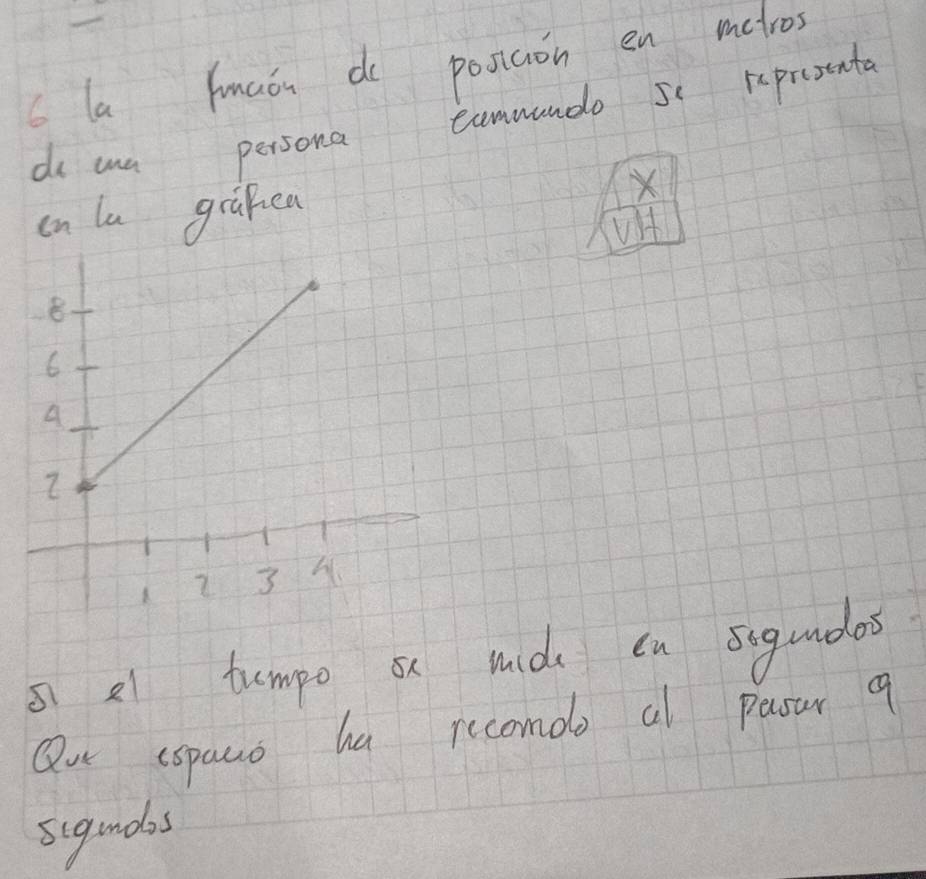 6 la función de posición en metros
de una persona caminando se representa
en la gráfica
X
V|t
8
6
4
2
1 2 3 4
si el tiempo se mide en segundos
Que espacio ha recorrido al pasar 9
segundos